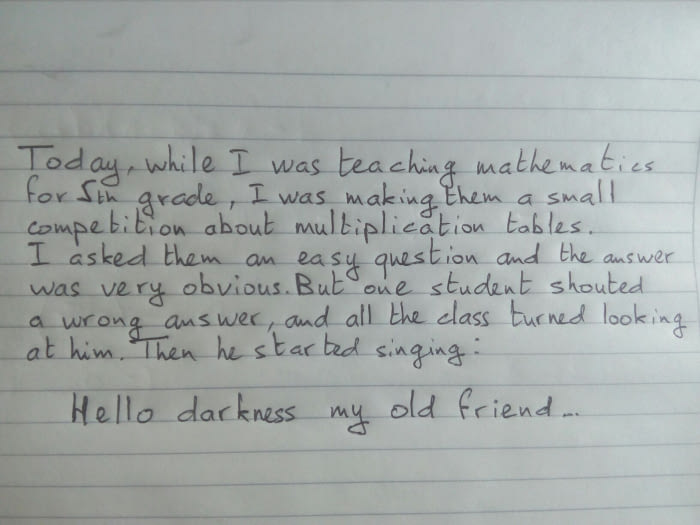 Today, while I was teaching mathematics
for 5th grade, I was making them a small
competition about multiplication tables.
I asked them an easy question and the answer
was very obvious. But one student shouted
a wrong answer, and all the class turned looking
at him. Then he started singing:
Hello darkness my old friend...